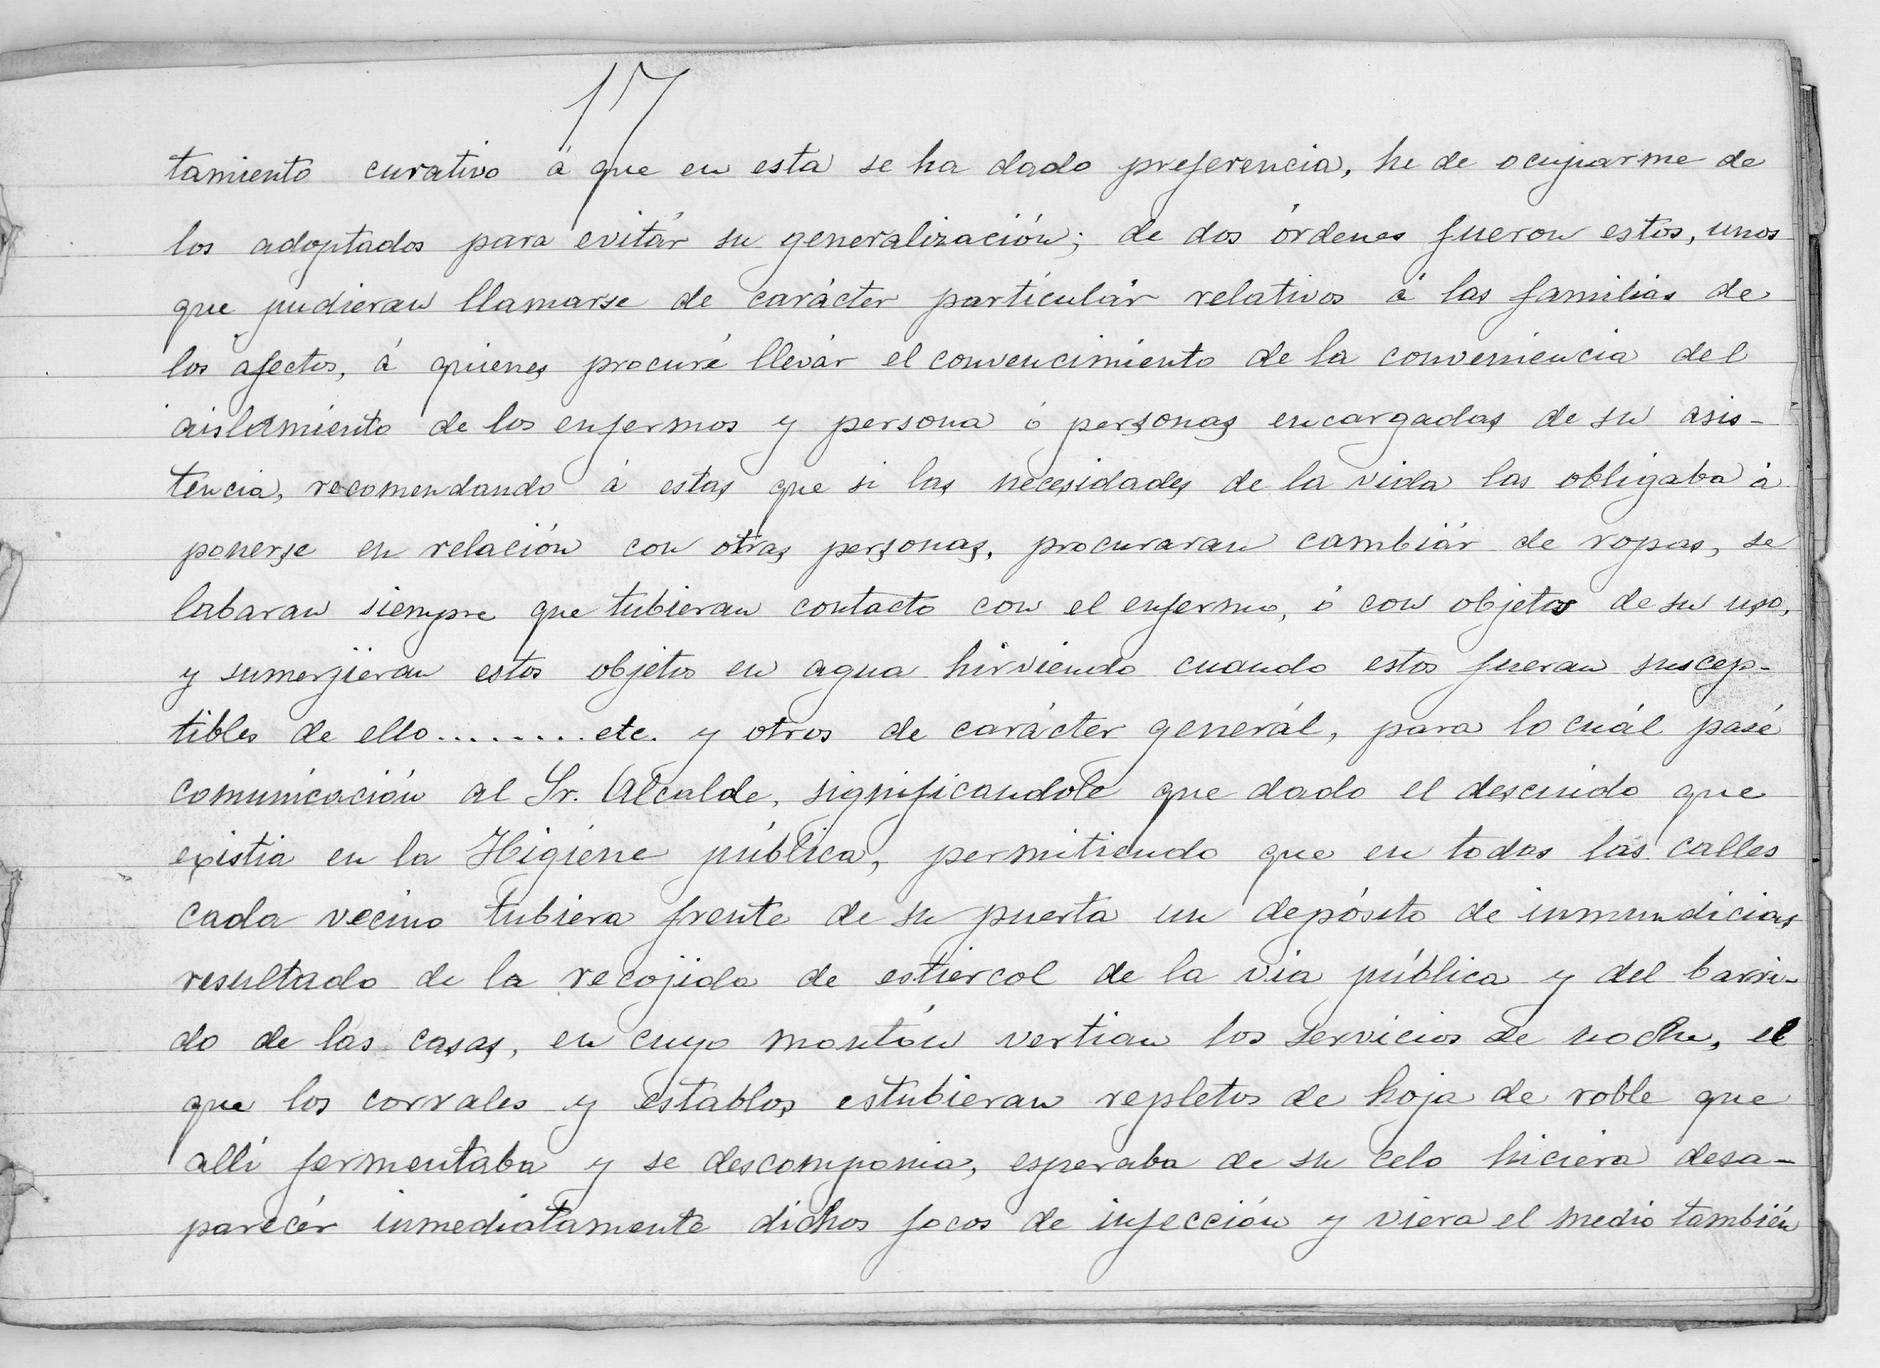 17
tamiento curativo á que en esta se ha dado preferencia, he de ocuparme de
los adoptados para evitár su generalización; de dos órdenes fueron estos, unos
que pudieran llamarse de carácter particulár relativos á las familias de
los afectos, á quienes procuré llevár el convencimiento de la conveniencia del
aislamiento de los enfermos y persona ó personas encargadas de su asis-
tencia, recomendando á estas que si las necesidades de la vida las obligaba á
ponerse en relación con otras personas, procuraran cambiár de ropas, se
labaran siempre que tubieran contacto con el enfermo, ó con objetos de su uso,
y sumerjieran estos objetos en agua hirviendo cuando estos fueran suscep-
tibles de ello.........etc. y otros de carácter generál, para lo cuál pasé
comunicación al Sr. Alcalde, significandole que dado el descuido que
existia en la Higiene pública, permitiendo que en todas las calles
cada vecino tubiera frente de su puerta un depósito de inmundicias
resultado de la recojida de estiercol de la via pública y del barri-
do de las casas, en cuyo montón vertian los servicios de noche, el
que los corrales y establos estubieran repletos de hoja de roble que
allí fermentaba y se descomponia, esperaba de su celo hiciera desa-
parecér inmediatamente dichos focos de infección y viera el medio también